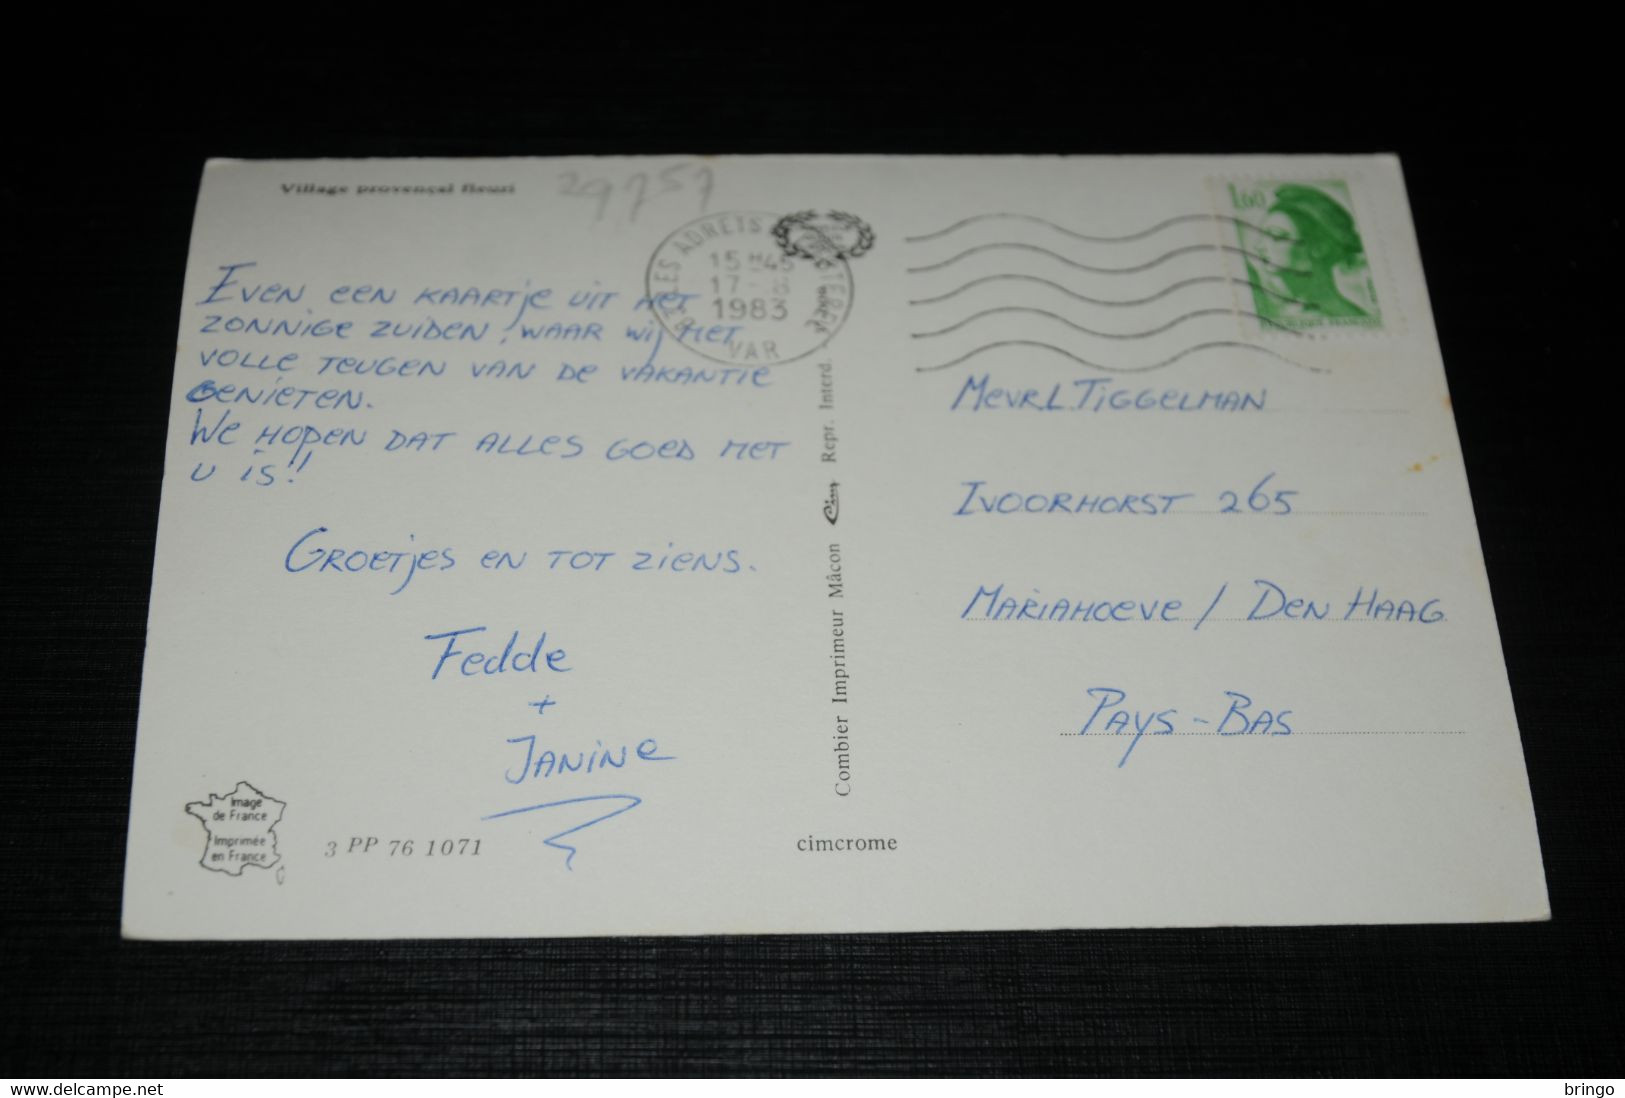 Village provençal fleuri
29757
LES ADRETS
15 H45
17 - 8
1983
VAR
1,60
REPUBLIQUE FRANÇAISE
EVEN EEN KAARTJE UIT HET
ZONNIGE ZUIDEN, WAAR WIJ MET
VOLLE TEUGEN VAN DE VAKANTIE
GENIETEN.
WE HOPEN DAT ALLES GOED MET
U IS!!
GROETJES EN TOT ZIENS.
FEDDE
+
JANINE
Combier Imprimeur Mâcon Cim Repr. Interd.
MEVR L. TIGGELMAN
IVOORHORST 265
MARIAHOEVE / DEN HAAG
PAYS-BAS
Image
de France
Imprimée
en France
3 PP 76 1071
cimcrome
www.delcampe.net
bringo